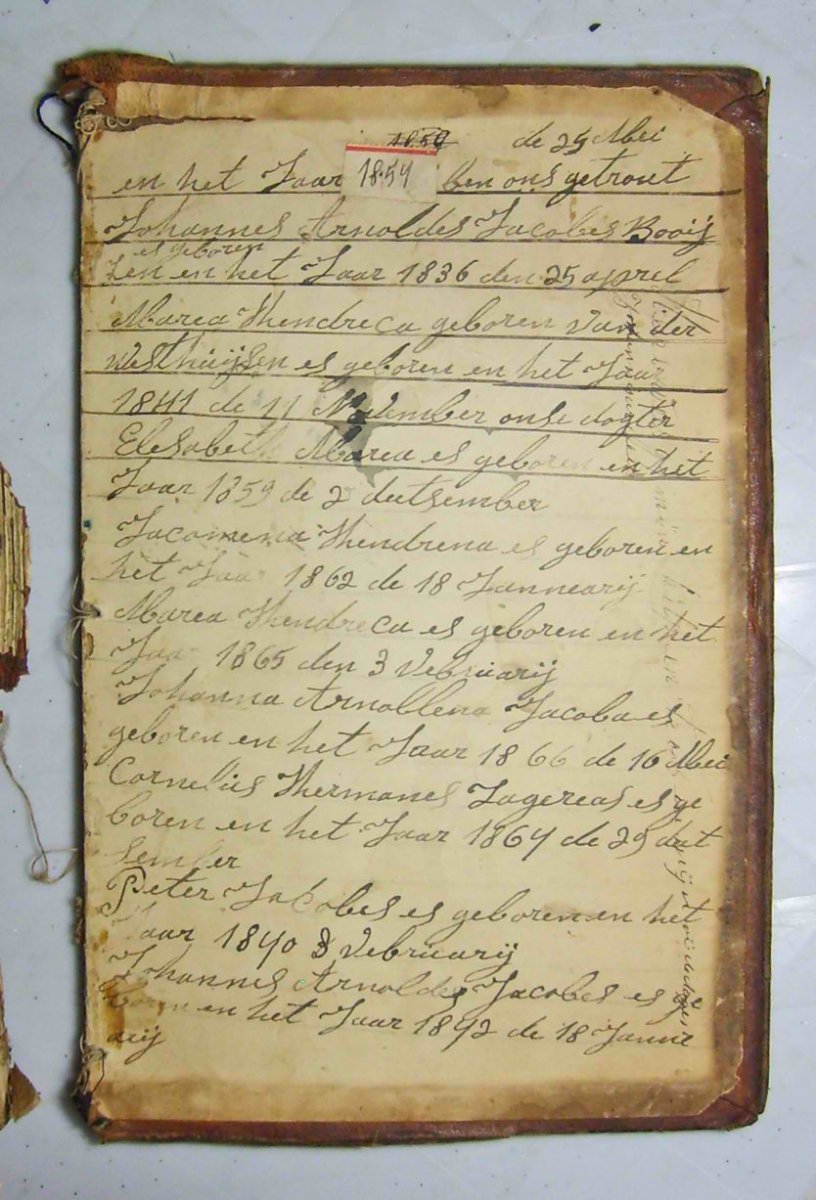 1859 de 25 Mei
en het Jaar 1854 ben ons getrout
Johannes Arnoldes Jacobes Booij
es geboren
zen en het Jaar 1836 den 25 aprel
Marea Hendreca geboren van der
Westhuijsen es geboren en het Jaar
1841 de 11 November onse dogter
Elesabeth Marea es geboren en het
Jaar 1859 de 2 deetsember
Jacomena Hendrena es geboren en
het Jaar 1862 de 18 Jannearij
Marea Hendreca es geboren en het
Jaar 1865 den 3 Vebruarij
Johanna Arnollena Jacoba es
geboren en het Jaar 1866 de 16 Mei
Cornelies Hermanes Zagereas es ge
boren en het Jaar 1867 de 29 deet
sember
Peter Jacobes es geboren en het
Jaar 1870 3 Vebruarij
Johannes Arnoldes Jacobes es ge
boren en het Jaar 1872 de 18 Janne
arij